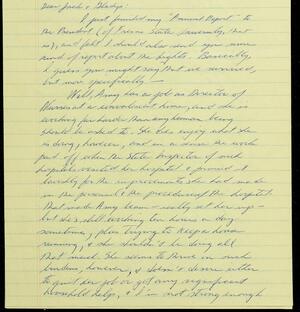 Dear Jack & Gladys:
I just finished my "Annual Report" to
the President (of Fresno State University, that
is), and felt I should also send you some
kind of report about the Lights. Basically,
I guess you might say that we survived,
but more specifically —
Well, Amy has a job as Director of
Nurses at a convalescent home, and she is
working far harder than any human being
should be asked to. She does enjoy what she
is doing, however, and in a sense the work
paid off when the State Inspector of such
hospitals visited her hospital & praised it
lavishly for the improvements she had made
in the personnel & the procedures of the hospital.
That made Amy beam — really set her up —
but she's still working ten hours a day
sometimes, plus trying to keep a home
running, & she shouldn't be doing all
that much. She seems to thrive on such
burdens, however, & doesn't desire either
to quit her job or get any significant
household help, & I'm not strong enough